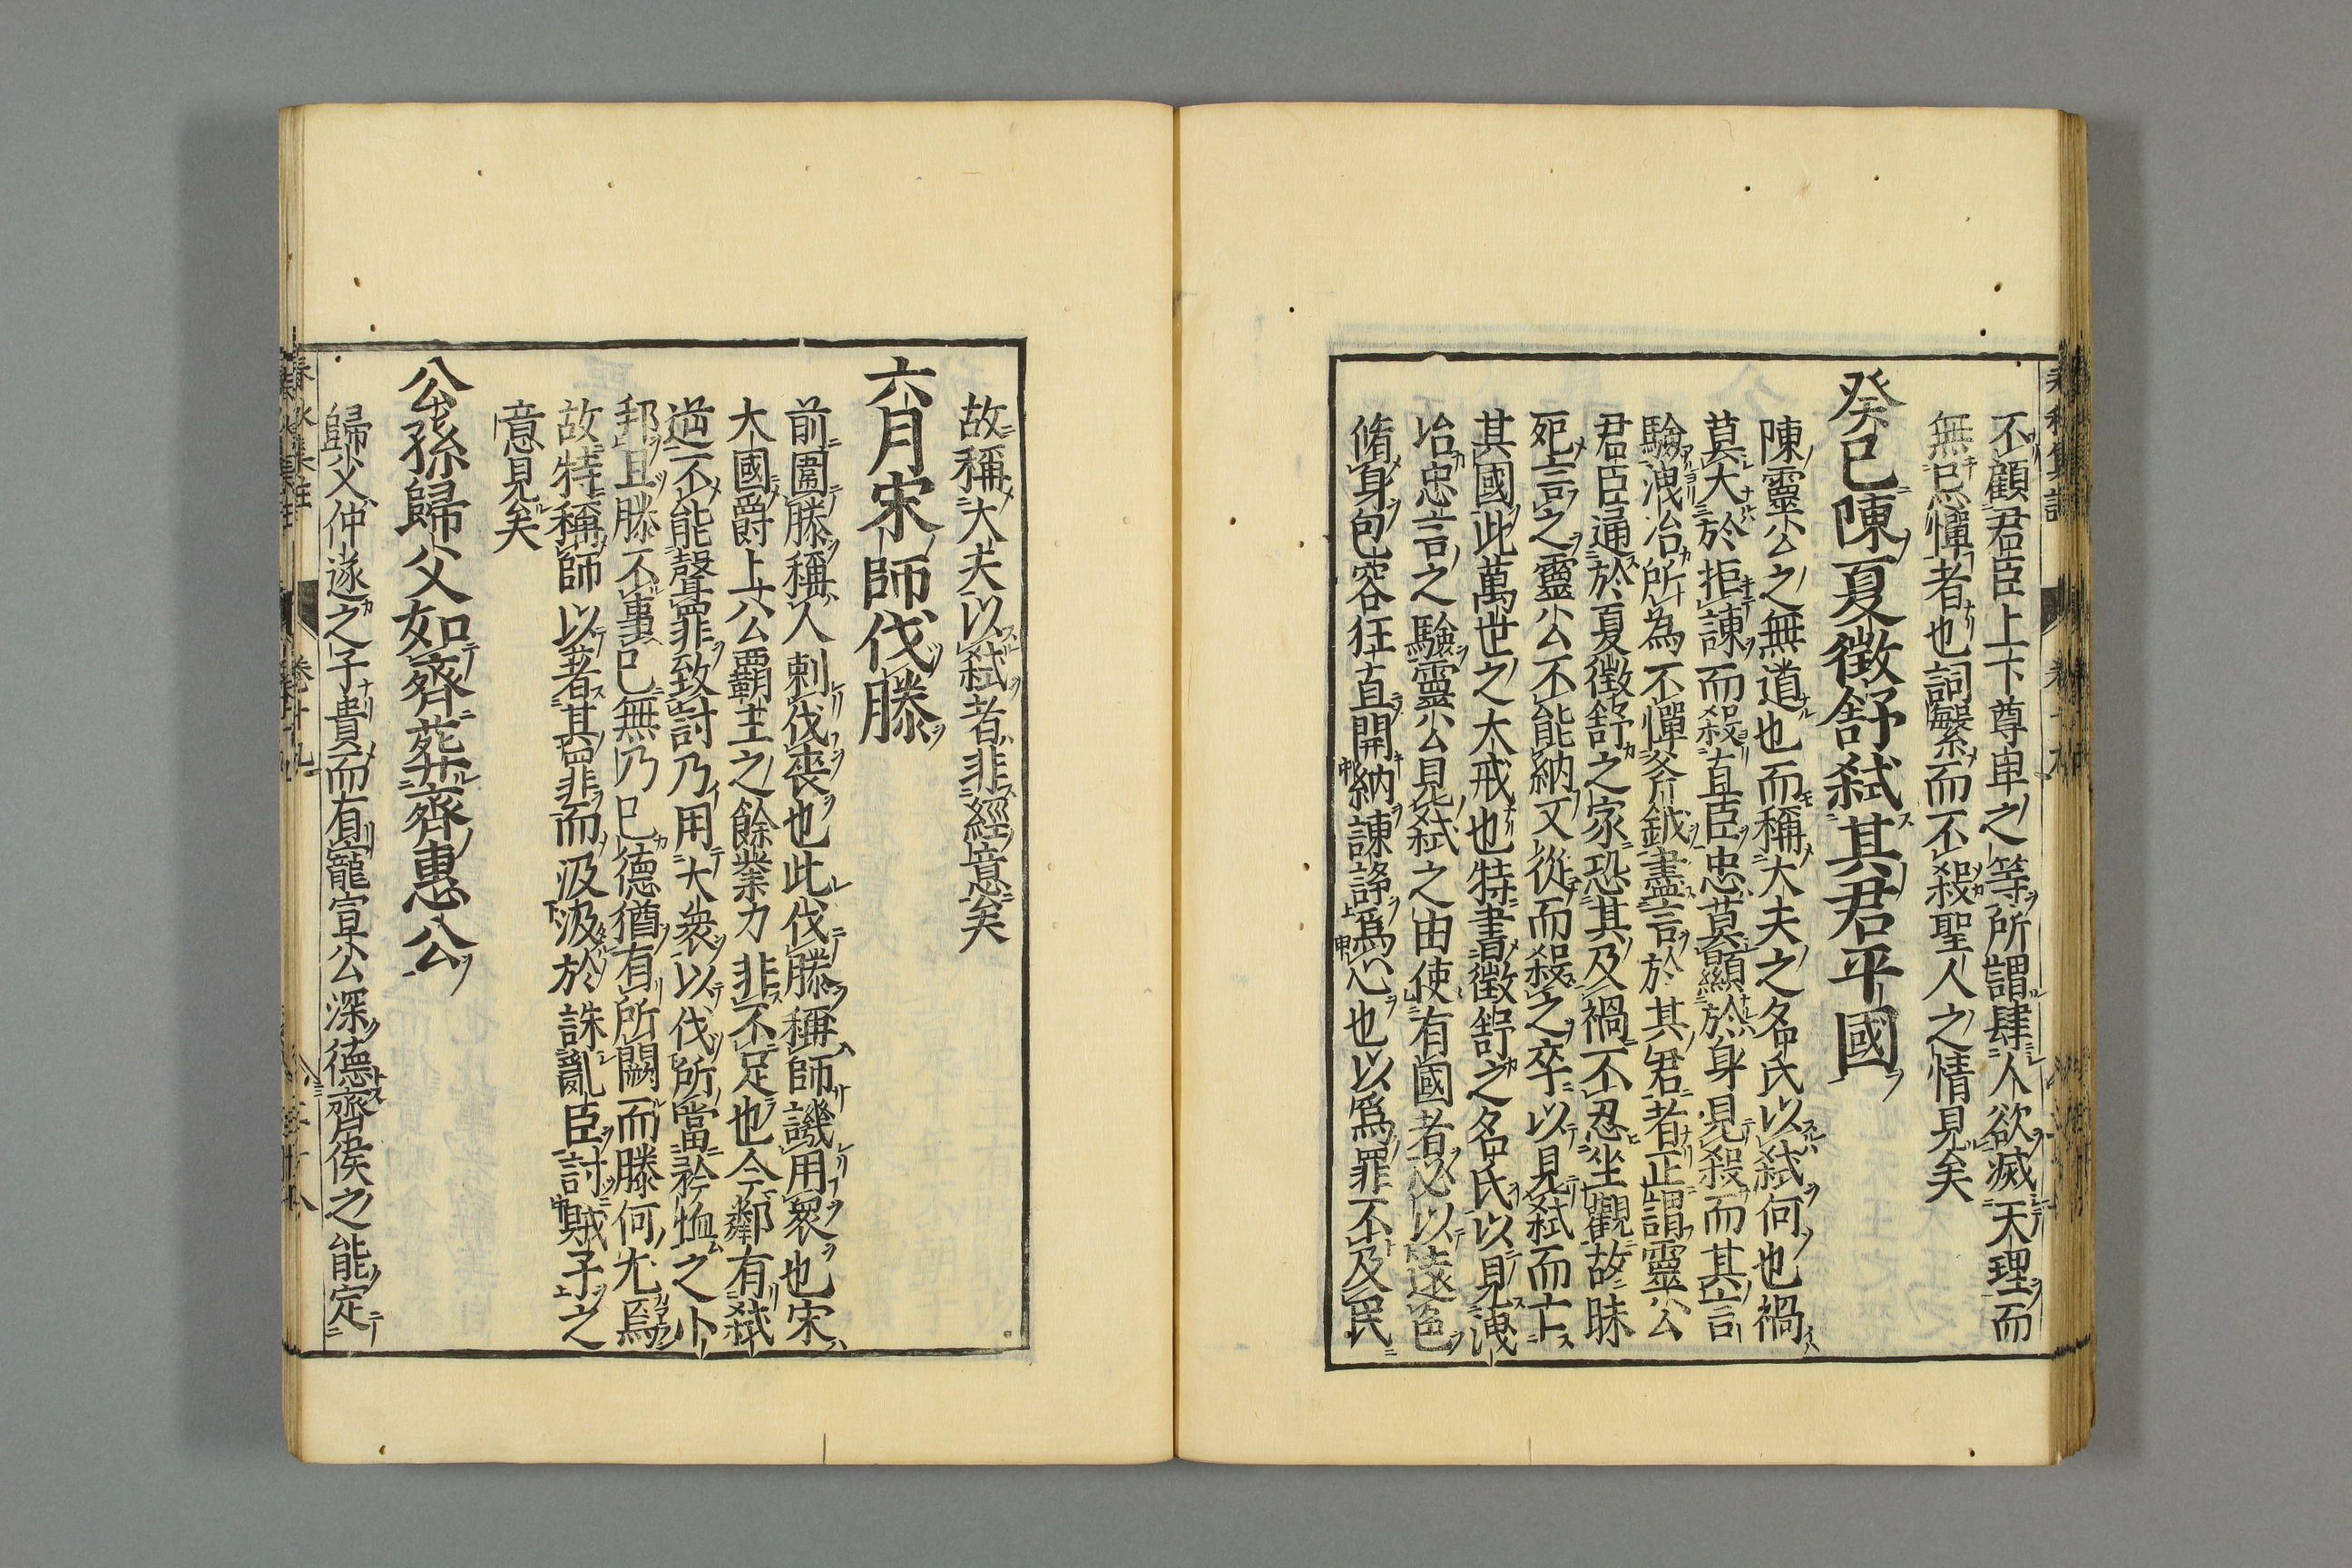 不顧君臣上下尊卑之等所謂肆人欲滅天理而
無忌憚者也詞繁而不殺聖人之情見矣
癸巳陳夏徵舒弑其君平國
陳靈公之無道也而稱大夫之名氏以弑何也禍
莫大於拒諫而殺直臣忠莫顯於身見殺而其言
驗洩冶所為不憚斧鉞盡言於其君者正謂靈公
君臣通於夏徵舒之家恐其及禍不忍坐觀故昧
死言之靈公不能納又從而殺之卒以見弑而亡
其國此萬世之大戒也特書徵舒之名氏以見洩
冶忠言之驗靈公見弑之由使有國者必以遠色
脩身包容狂直開納諫諍爲心也以爲罪不及民
故稱大夫以弑者非經意矣
六月宋師伐滕
前圍滕稱人刺伐喪也此伐滕稱師譏用衆也宋
大國爵上公霸主之餘業力非不足也今鄰有弑
逆不能聲罪致討乃用大衆以伐所當矜恤之小
邦且滕不事己無乃己德猶有所闕而滕何尤焉
故特稱師以著其罪而汲汲於誅亂臣討賊子之
意見矣
公孫歸父如齊葬齊惠公
歸父仲遂之子貴而有寵宣公深德齊侯之能定
春秋集註 卷十九